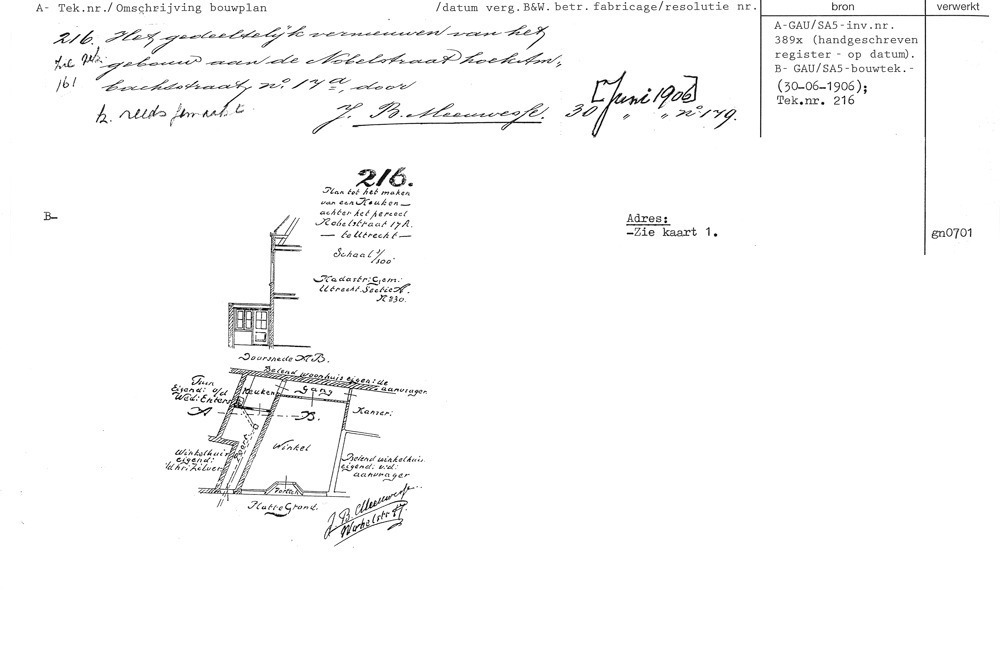 A- Tek.nr./Omschrijving bouwplan /datum verg.B&W. betr.fabricage/resolutie nr. bron verwerkt
216. Het gedeeltelijk vernieuwen van het
gebouw aan de Nobelstraat hoek Am-
bachtstraat, no. 17a, door
J. B. Meeuwesse. 30 [Juni 1906] " " no 179.
161
reeds gemaakt
A-GAU/SA5-inv.nr.
389x (handgeschreven
register - op datum).
B- GAU/SA5-bouwtek.-
(30-06-1906);
Tek.nr. 216
B-
216.
Plan tot het maken
van een Keuken
achter het perceel
Nobelstraat 17A.
— te Utrecht —
Schaal 1/100
Kadastr: Gem:
Utrecht. Sectie A.
N 830.
Adres:
-Zie kaart 1.
gn0701
Doorsnede A B.
Belend woonhuis eigen: de
aanvrager
Tuin
Eigend: v/d
Wed: Enters
Keuken
Gang
A
B.
Kamer.
Winkel
Winkelhuis
eigend:
d hr. Zilver
Belend winkelhuis
eigend: v.d.
aanvrager
Portaal
Platte Grond.
J B Meeuwesse
Nobelstr 17